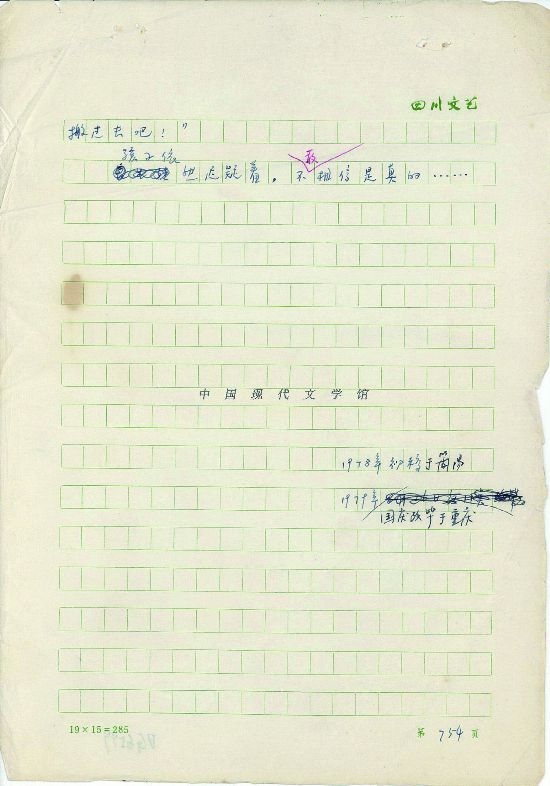 四川文艺
搬过去吧！”
孩子依
他迟疑着，不敢相信是真的……
中国现代文学馆
1978年初稿于简阳
1979年
国庆改毕于重庆
19×15=285
第 754 页